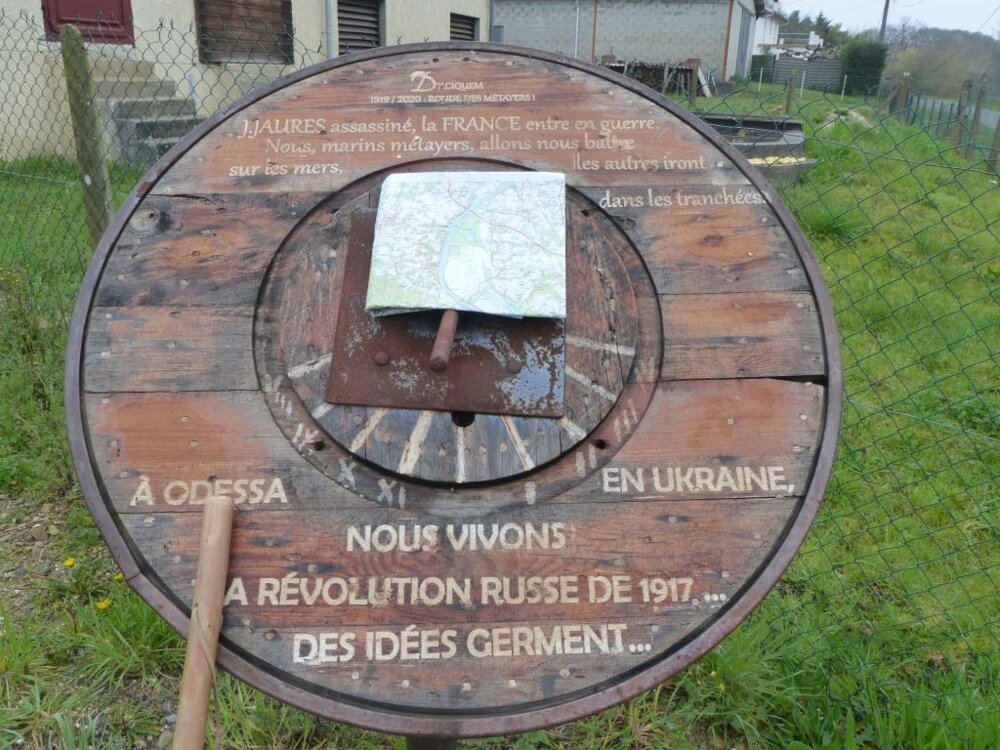 1919 / 2020 : RONDE DES MÉTAYERS !
J.JAURES assassiné, la FRANCE entre en guerre.
Nous, marins métayers, allons nous battre
sur les mers, les autres iront
dans les tranchées.
VIII
IX
X
XI
I
II
III
À ODESSA EN UKRAINE,
NOUS VIVONS
A RÉVOLUTION RUSSE DE 1917 ...
DES IDÉES GERMENT...